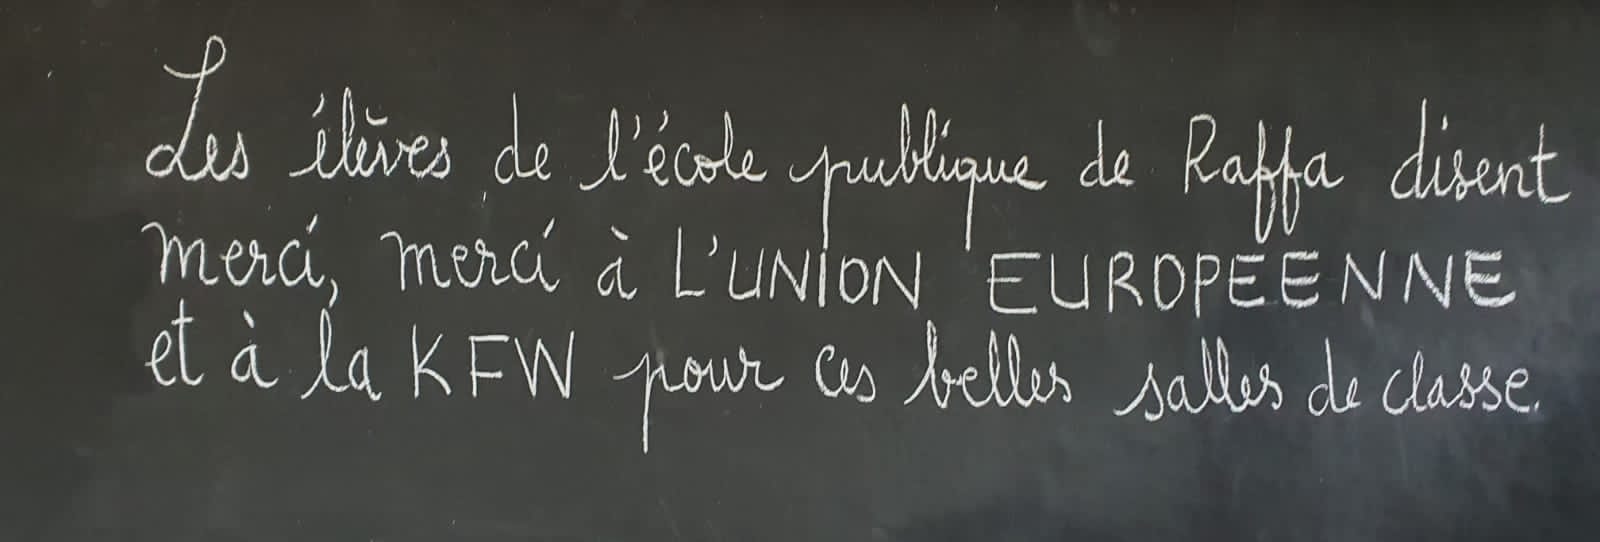 Les élèves de l'école publique de Raffa disent
merci, merci à L'UNION EUROPEENNE
et à la KFW pour ces belles salles de classe.